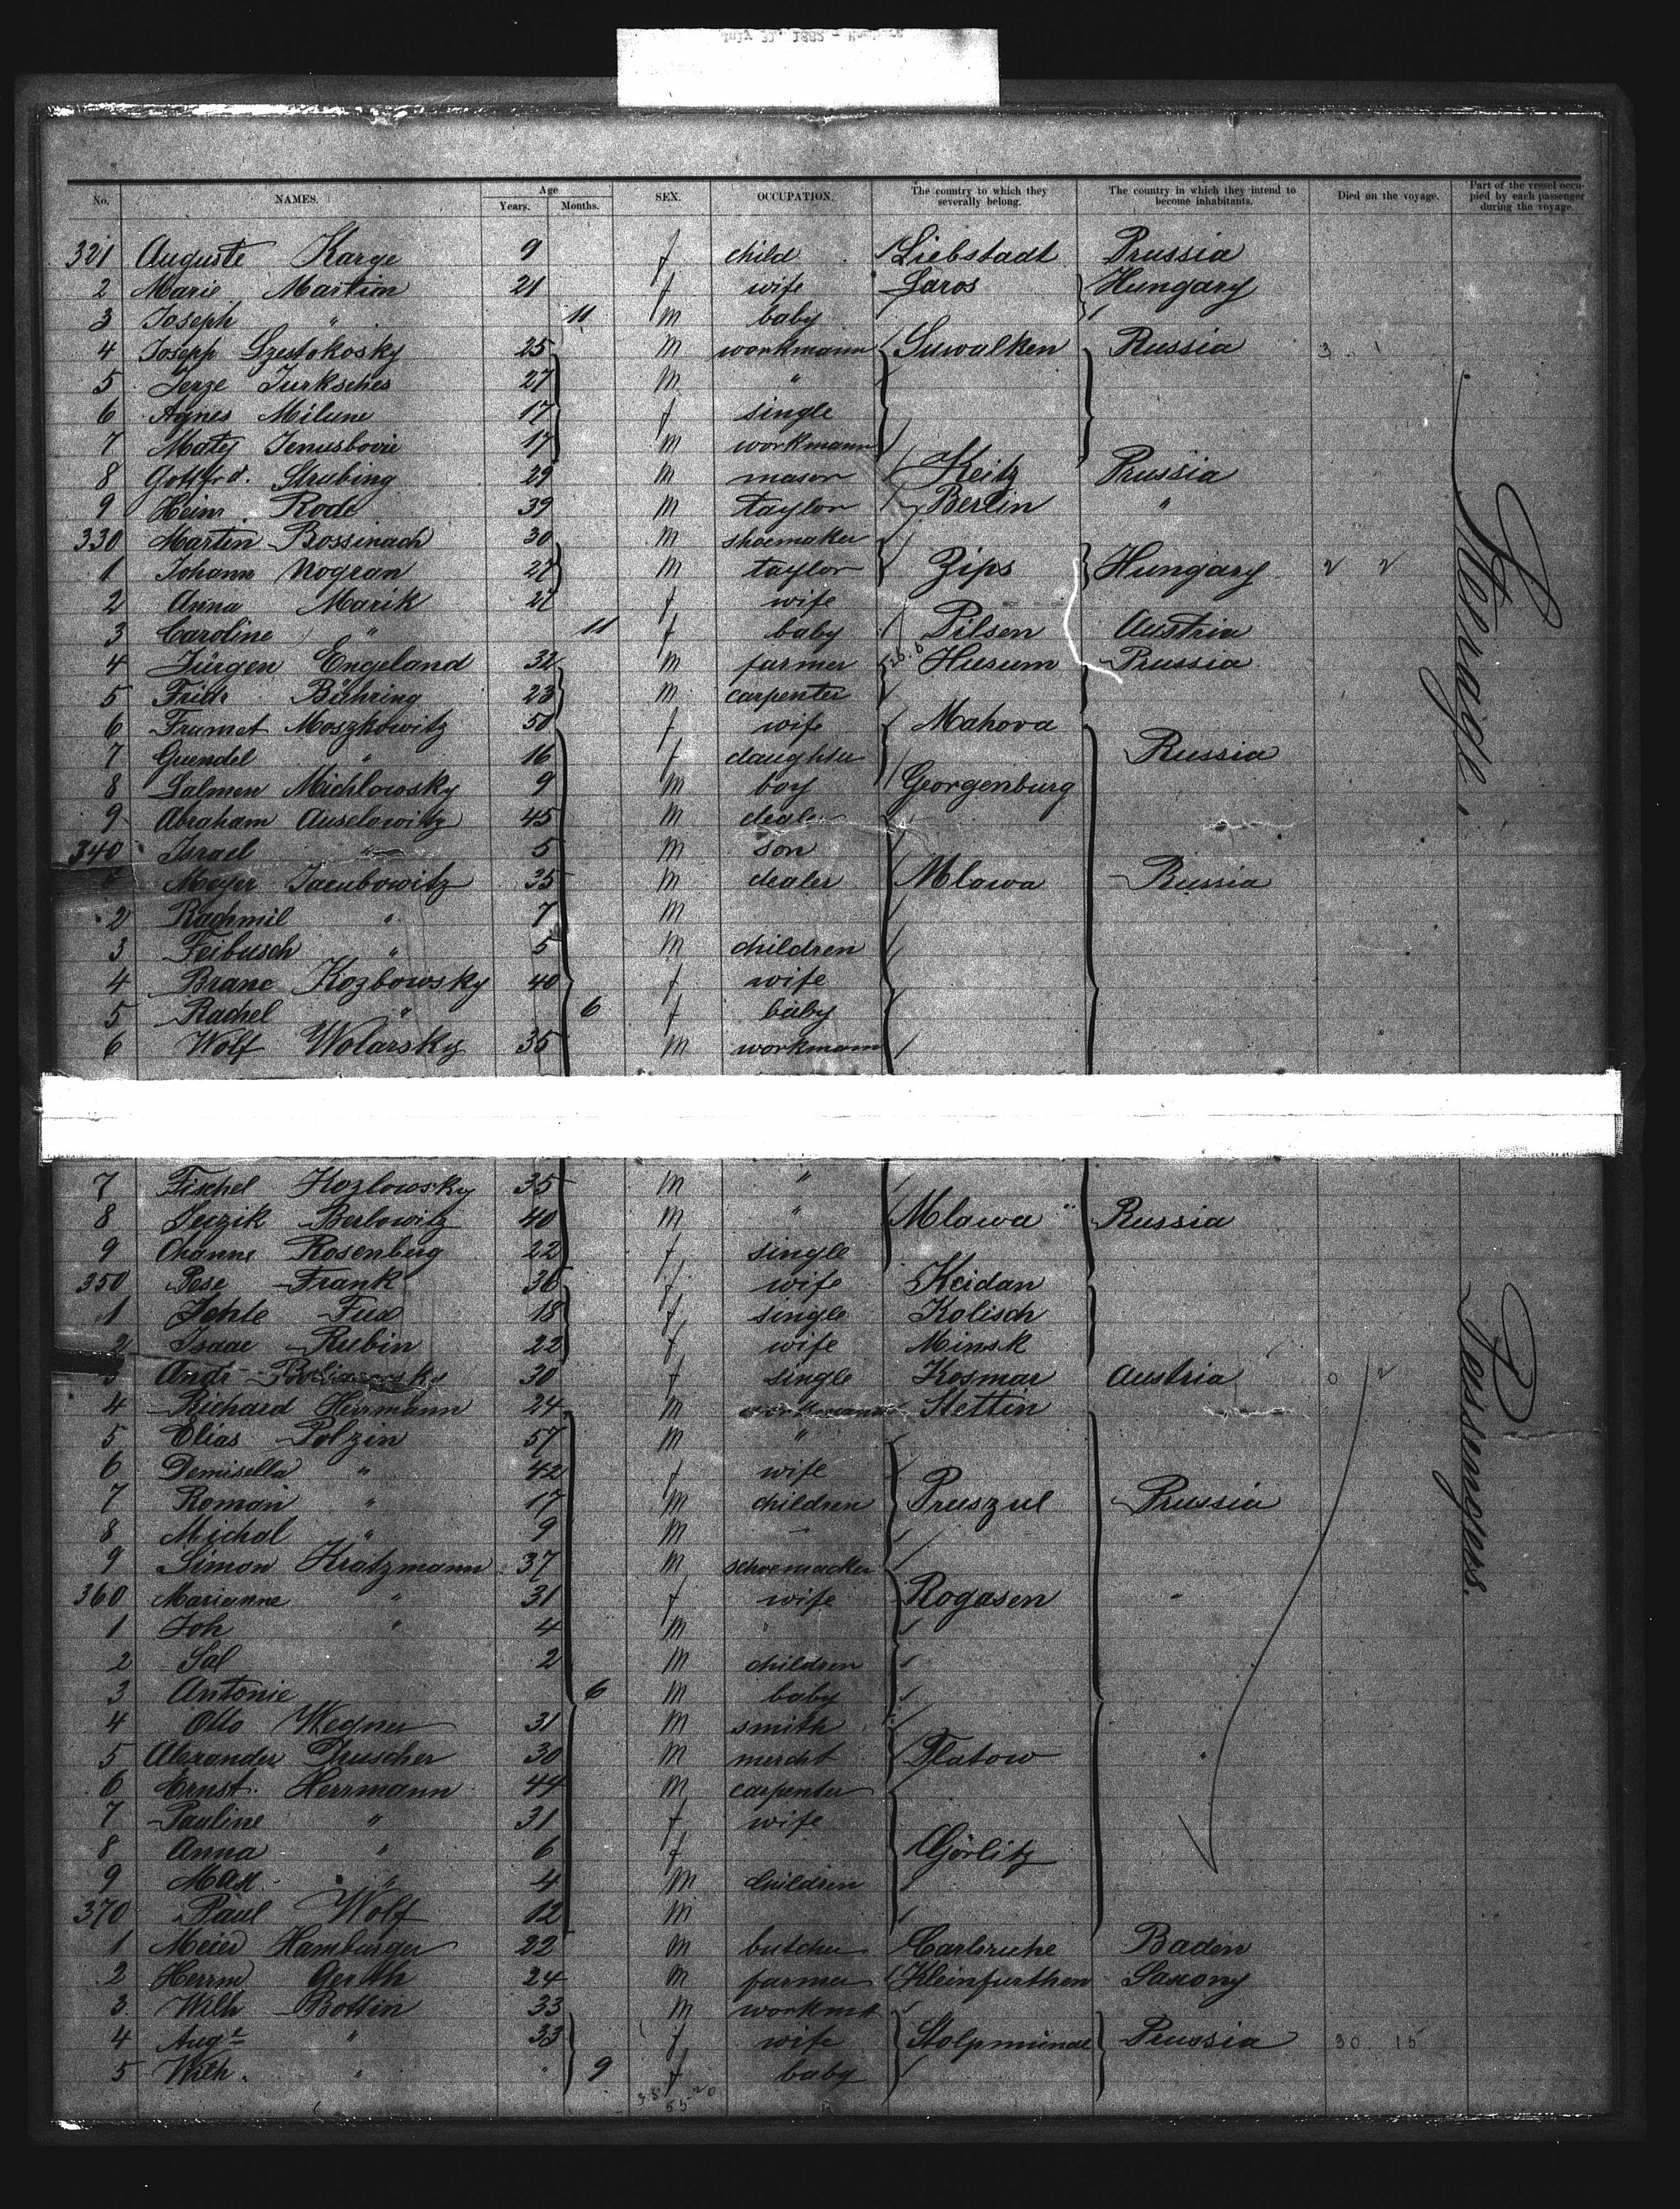 No. NAMES. Age Years. Months. SEX. OCCUPATION. The country to which they severally belong. The country in which they intend to become inhabitants. Died on the voyage. Part of the vessel occupied by each passenger during the voyage.
321 Auguste Karge 9 f child Liebstadt Prussia
2 Marie Martion 21 f wife Saros Hungary
3 Joseph " 11 m baby
4 Joseph Szestokosky 25 m workmann Suwalken Russia
5 Jerze Jurksches 27 m "
6 Agnes Milune 17 f single
7 Matej Jenusbovie 17 m workmann
8 Gottfrd. Strubing 29 m mason Keitz Prussia
9 Heinr Rode 39 m taylor Berlin "
330 Martin Rossinach 30 m shoemaker
1 Johann Nogran 27 m taylor Zips Hungary
2 Anna Marik 27 f wife
3 Caroline " 11 f baby Pilsen Austria
4 Jürgen Engeland 32 m farmer Husum Prussia
5 Fridr Bühring 23 m carpenter
6 Frumet Moszkowitz 50 f wife Mahova
7 Guendel " 16 f daughter Russia
8 Salmen Michlowsky 9 m boy Georgenburg
9 Abraham Auselowitz 45 m dealer
340 Israel " 5 m son
Meyer Jacubowitz 35 m dealer Mlawa Russia
2 Rachmil " 7 m
3 Feibusch " 5 m children
4 Brane Kozbowsky 40 f wife
5 Rachel " 6 f baby
6 Wolf Wolarsky 35 m workmann
7 Fischel Kozlowsky 35 m "
8 Jeczik Berlowitz 40 m " Mlawa Russia
9 Channe Rosenberg 22 f single
350 Pese Frank 36 f wife Keidan
1 Jehte Fux 18 f single Kolisch
2 Isaac Rubin 22 f wife Minsk
3 Andr 30 f single Kosmar Austria
4 Richard Herrmann 24 m workmann Stettin
5 Elias Polzin 57 m "
6 Demisella " 42 f wife
7 Roman " 17 m children Pruszul Prussia
8 Michal " 9 m
9 Simon Kratzmann 37 m schoemacker
360 Marianne " 31 f wife Rogasen "
1 Joh " 4 m "
2 Sal 2 m children
3 Antonie 6 m baby
4 Otto Wegner 31 m smith
5 Alexander Thuscher 30 m mercht Flatow "
6 Ernst Herrmann 44 m carpenter
7 Pauline " 31 f wife
8 Anna " 6 f Görlitz
9 Max " 4 m children
370 Paul Wolf 12 m
1 Meier Hamburger 22 m butcher Carlsruhe Baden
2 Herrm Gerth 24 m farmer Kleinfurthen Saxony
3 Wilh Bottin 33 m workmn
4 Auge " 33 f wife Stolpmünde Prussia 30 15
5 Wilh. " 9 f baby
Steerage.
Passengers.